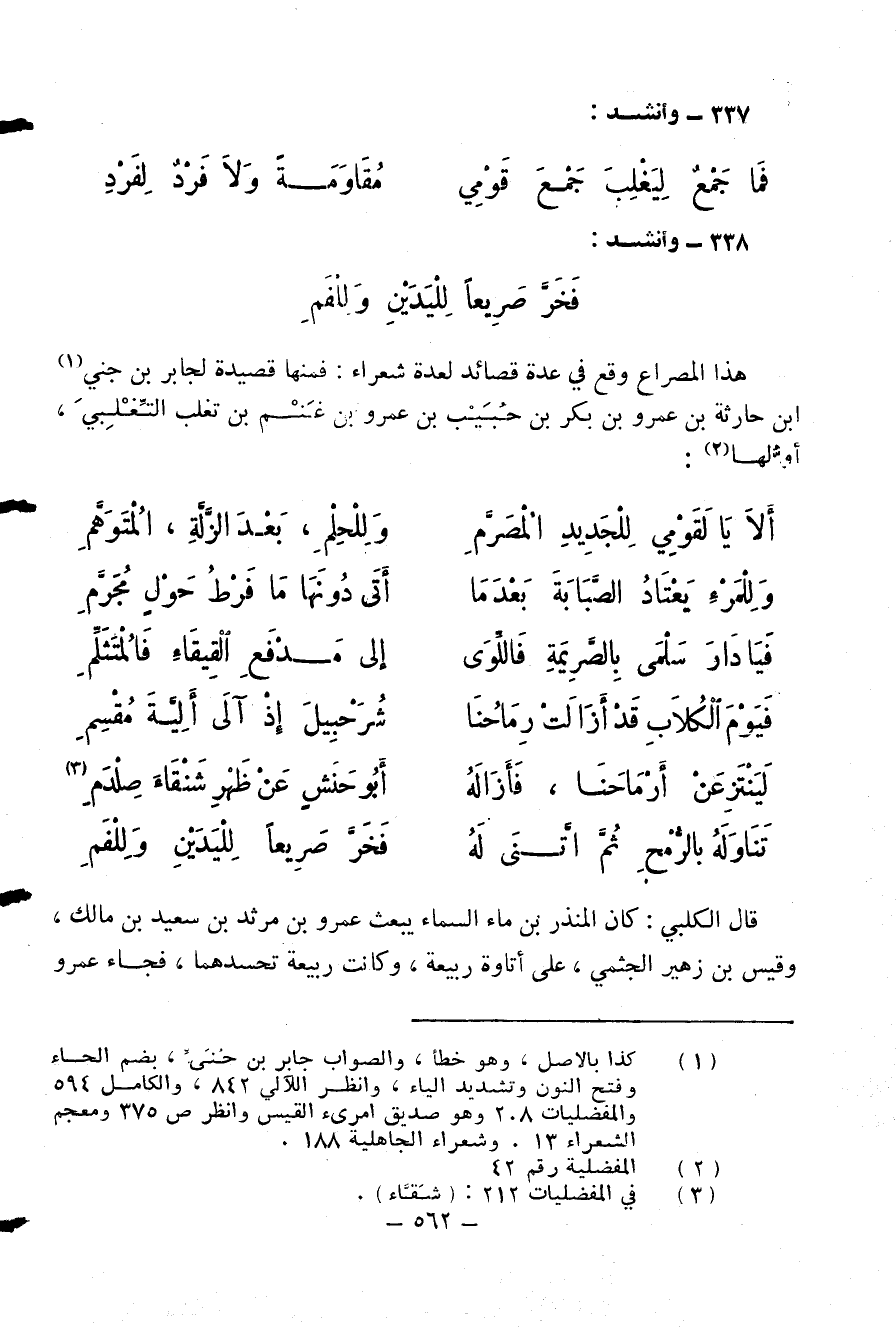 ٣٣٧ ـ وأنشـــد :
فَمَا جَمْعٌ لِيَغْلِبَ جَمْعَ قَوْمِي مُقَاوَمَـــةً وَلاَ فَرْدٌ لِفَرْدِ
٣٣٨ ـ وأنشـــد :
فَخَرَّ صَرِيعاً لِلْيَدَيْنِ وَلِلْفَمِ
هذا المصراع وقع في عدة قصائد لعدة شعراء : فمنها قصيدة لجابر بن جني(١)
ابن حارثة بن عمرو بن بكر بن حُبَيَيْب بن عمرو بن غَنَنْـم بن تغلب التَّغْلِبيّ ،
أوّلهـا(٢) :
أَلاَ يَا لَقَوْمِي لِلْجَدِيدِ الْمُصَرَّمِ وَلِلْحِلْمِ ، بَعْدَ الزَّلَّةِ ، الْمُتَوَهَّمِ
وَلِلْمَرْءِ يَعْتَادُ الصَّبَابَةَ بَعْدَمَا أَتَى دُونَهَا مَا فَرْطُ حَوْلٍ مُجَرَّمِ
فَيَا دَارَ سَلْمَى بِالصَّرِيمَةِ فَاللِّوَى إلى مَـــدْفَعِ الْقِيقَاءِ فَالْمُتَثَلَّمِ
فَيَوْمَ الْكُلاَبِ قَدْ أَزَالَتْ رِمَاحُنَا شُرَحْبِيلَ إِذْ آلَى أَلِيَّـةَ مُقْسِمِ
لَيَنْتَزِعَنْ أَرْمَاحَنَـا ، فَأَزَالَهُ أَبُو حَنَشٍ عَنْ ظَهْرِ شَنْقَاءَ صِلْدَمِ(٣)
تَنَاوَلَهُ بِالرُّمْحِ ثُمَّ اتَّـــنَى لَهُ فَخَرَّ صَرِيعاً لِلْيَدَيْنِ وَلِلْفَمِ
قال الكلبي : كان المنذر بن ماء السماء يبعث عمرو بن مرثد بن سعيد بن مالك ،
وقيس بن زهير الجثمي ، على أتاوة ربيعة ، وكانت ربيعة تحسدهما ، فجـاء عمرو
(١) كذا بالاصل ، وهو خطأ ، والصواب جابر بن حُنَىّ ، بضم الحـاء
وفتح النون وتشديد الياء ، وانظـر اللآلي ٨٤٢ ، والكامـل ٥٩٤
والمفضليات ٢٠٨ وهو صديق امرىء القيس وانظر ص ٣٧٥ ومعجم
الشعراء ١٣ . وشعراء الجاهلية ١٨٨ .
(٢) المفضلية رقم ٤٢
(٣) في المفضليات ٢١٢ : ( شَقَّاء ) .
ـ ٥٦٢ ـ